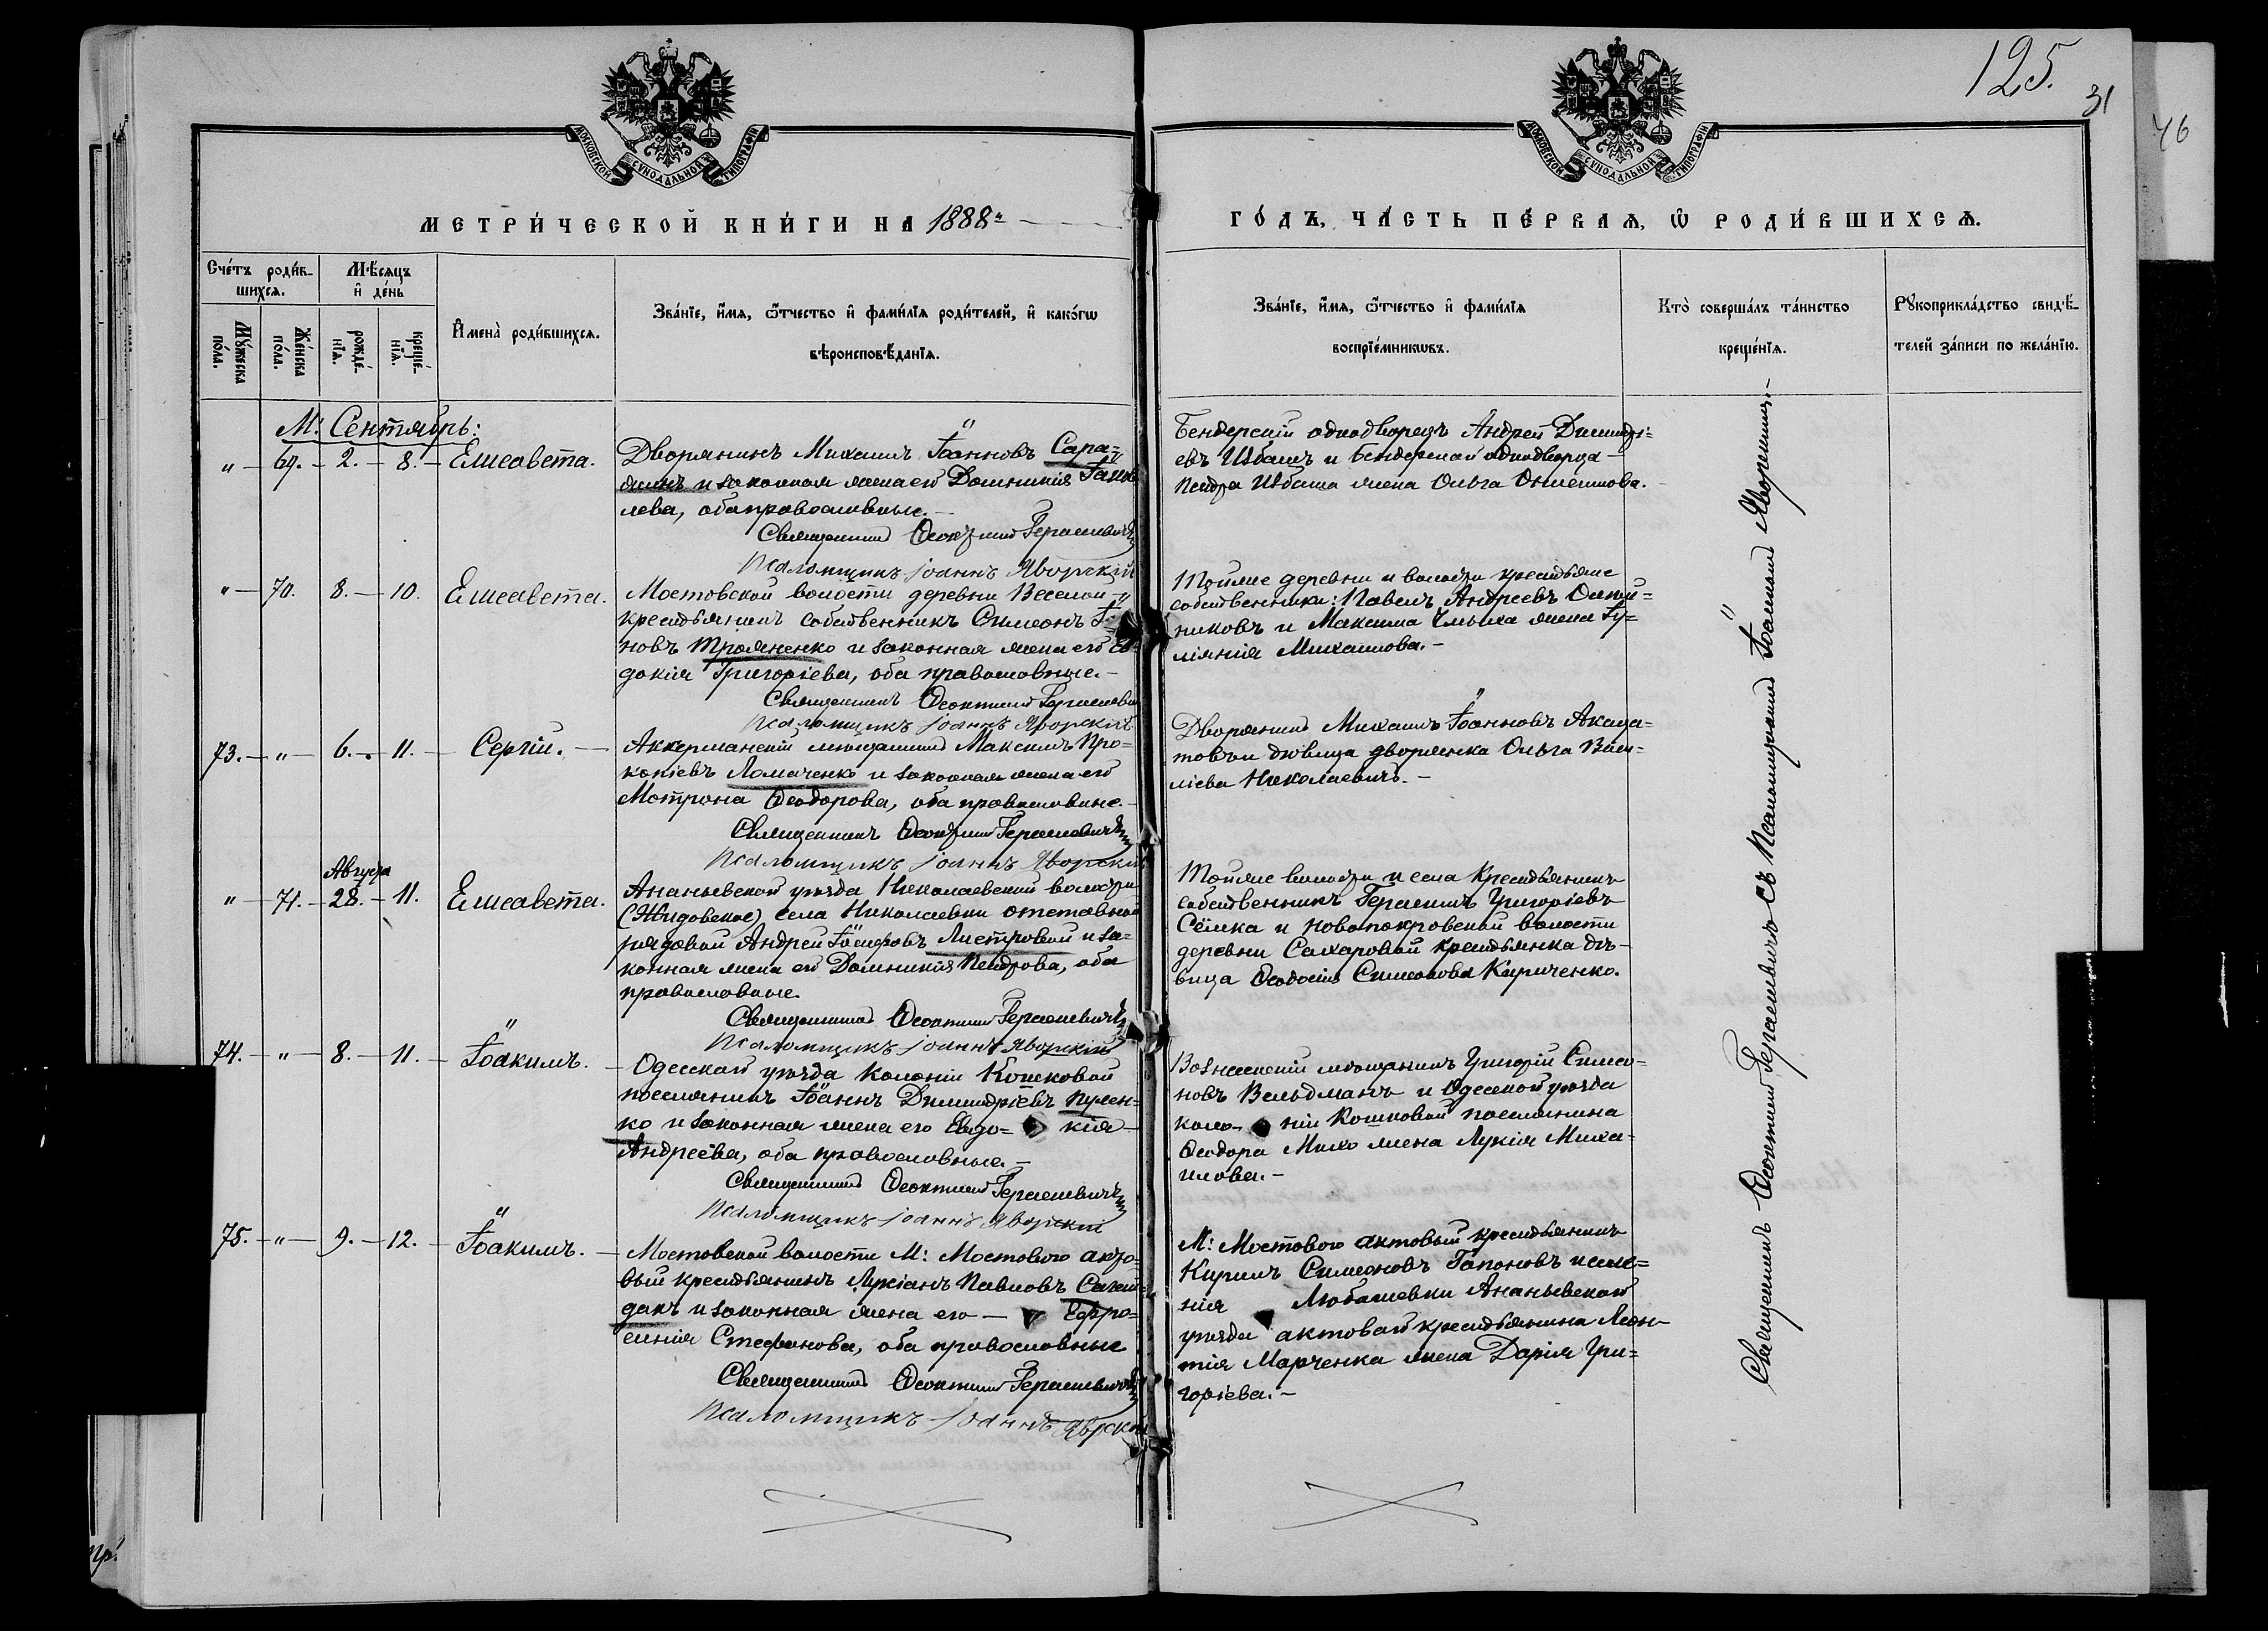 125.
31
46
МОСКОВСКОЙ СѴНОДАЛЬНОЙ ТИПОГРАФІИ
МОСКОВСКОЙ СѴНОДАЛЬНОЙ ТИПОГРАФІИ
МЕТРИ́ЧЕСКОЙ КНИ́ГИ НА 1888й
ГО́ДЪ, ЧА́СТЬ ПЕ́РВАѦ, Ѡ҆ РОДИ́ВШИХСѦ.
Сче́тъ роди́в-
шихсѧ.
Мѣ́сѧцъ
и҆ де́нь
Мꙋ́жеска по́ла.
Же́нска по́ла.
рожде́-нїѧ.
креще́-нїѧ.
И҆мена̀ роди́вшихсѧ.
Зва́нїе, и҆́мѧ, ѻ҆́тчество и҆ фами́лїѧ роди́телей, и҆ како́гѡ
вѣроисповѣ́данїѧ.
Зва́нїе, и҆́мѧ, ѻ҆́тчество и҆ фами́лїѧ
воспрїе́мникѡвъ.
Кто̀ соверша́лъ та́инство
креще́нїѧ.
Рꙋкоприкла́дство свидѣ́-
телей за́писи по жела́нїю.
М: Сентябрь:
" — 69. — 2. — 8. — Елисавета.
Дворянинъ Михаилъ Іоанновъ Сара-
и законная жена его Домникія Іаков
лева, оба православные. —
Священникъ Ѳеоктистъ Герасимовичъ
Псаломщикъ Іоаннъ Яворскій
Бендерскій однодворецъ Андрей Димитрі=
евъ Избашъ и Бендерскаго однодворца —
Петра Избаша жена Ольга
" — 70. 8. — 10. Елисавета.
Мостовской волости деревни Веселой
крестьянинъ собственникъ Симеонъ
новъ Трояненко и законная жена его Ев=
докія Григоріева, оба православные. —
Священникъ Ѳеоктистъ Герасимович
Псаломщикъ Іоаннъ Яворскій
Тойже деревни и волости крестьяне
собственники: Павелъ Андреевъ Олей=
никовъ и Максима жена Іу=
ліянія Михаилова. —
73. — " — 6. — 11. — Сергій. —
Аккерманскій мѣщанинъ Максимъ Про=
копіевъ Ломаченко и законная жена его
Мотрона Ѳеодорова, оба православные. —
Священникъ Ѳеоктистъ Герасимовичъ
Псаломщикъ Іоаннъ Яворскій
Дворянинъ Михаилъ Іоанновъ Акаца=
товъ и дѣвица дворянка Ольга Васи=
ліева Николаевичъ. —
Августа
" — 71. — 28. — 11. Елисавета.
Ананьевскаго уѣзда Николаевской волости
(Жидовское) села Николаевки отставной
рядовой Андрей Іосифовъ Листровой и за=
конная жена его Домникія Петрова, оба
православные.
Священникъ Ѳеоктистъ Герасимовичъ
Псаломщикъ Іоаннъ Яворскій
Тойже волости и села Крестьянинъ
собственникъ Герасимъ Григоріевъ
Сёмка и Новопокровской волости
деревни Сахаровой крестьянка дѣ-
вица Ѳеодосія Симеонова Кириченко.
74. — " — 8. — 11. — Іоакимъ. —
Одесскаго уѣзда Колоніи Кошковой
поселянинъ Іоаннъ Димитріевъ Пулен=
ко и законная жена его Евдо= кія —
Андреева, оба православные. —
Священникъ Ѳеоктистъ Герасимовичъ
Псаломщикъ Іоаннъ Яворскій
Вознесенскій мѣщанинъ Григорій Симео-
новъ Вельдманъ и Одесскаго уѣзда
коло- ніи Кошковой поселянина
Ѳеодора жена Лукія Миха=
илова. —
75. — " — 9. — 12. — Іоакимъ. —
Мостовской волости М: Мостового акто=
вый крестьянинъ Лукіанъ Павловъ Сагай=
дакъ и законная жена его — Евфро=
синія Стефанова, оба православные
Священникъ Ѳеоктистъ Герасимовичъ
Псаломщикъ Іоаннъ Яврскій
М: Мостового актовый крестьянинъ
Кирилъ Симеоновъ Гапоновъ и имѣ=
нія Любашевки Ананьевскаго
уѣзда актоваго крестьянина Леон-
тія Марченка жена Дарія Гри=
горіева. —
Священникъ Ѳеоктистъ Герасимовичъ съ Псаломщикомъ Іоанномъ Яворскимъ. —